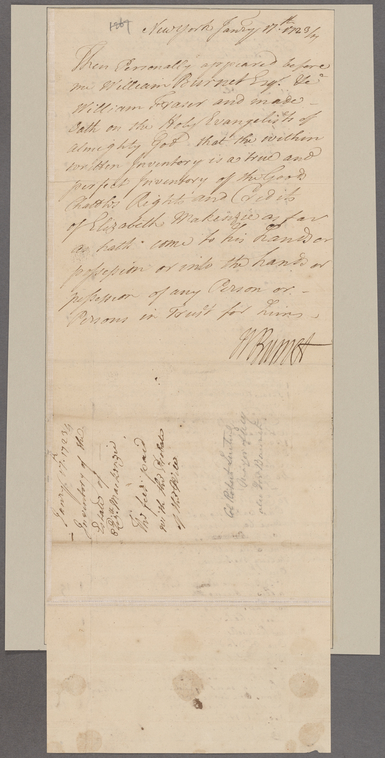 New York Janry 17th 1723/4
Then Personally appeared before
me William Burnet Esqr. &c
William Fraser and made
oath on the Holy Evangelists of
almighty God that the within
written Inventory is a true and
perfect Inventory of the Goods
Chattles Rights and Credits
of Elizabeth Makinzie as far
as hath come to his hands or
possession or into the hands or
possession of any Person or
Persons in Trust for him.
WBurnet
Janry 17th 1723/4
Inventory of the
Estate of
Makenzie
The fees paid
with the
of